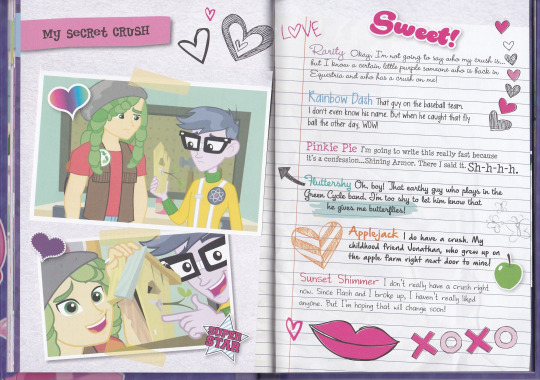 My Secret CRUSH
SUPER
STAR
LOVE
Sweet!
Rarity Okay, I'm not going to say who my crush is...
but I know a certain little purple someone who is back in
Equestria and who has a crush on me!
Rainbow Dash That guy on the baseball team.
I don't even know his name. But when he caught that fly
ball the other day, WOW!
Pinkie Pie I'm going to write this really fast because
it's a confession...Shining Armor. There I said it. Sh-h-h-h.
Fluttershy Oh, boy! That earthy guy who plays in the
Green Cycle band. I'm too shy to let him know that
he gives me butterflies!
Applejack I do have a crush. My
childhood friend Jonathan, who grew up on
the apple farm right next door to mine!
Sunset Shimmer I don't really have a crush right
now. Since Flash and I broke up, I haven't really liked
anyone. But I'm hoping that will change soon!
XOXO